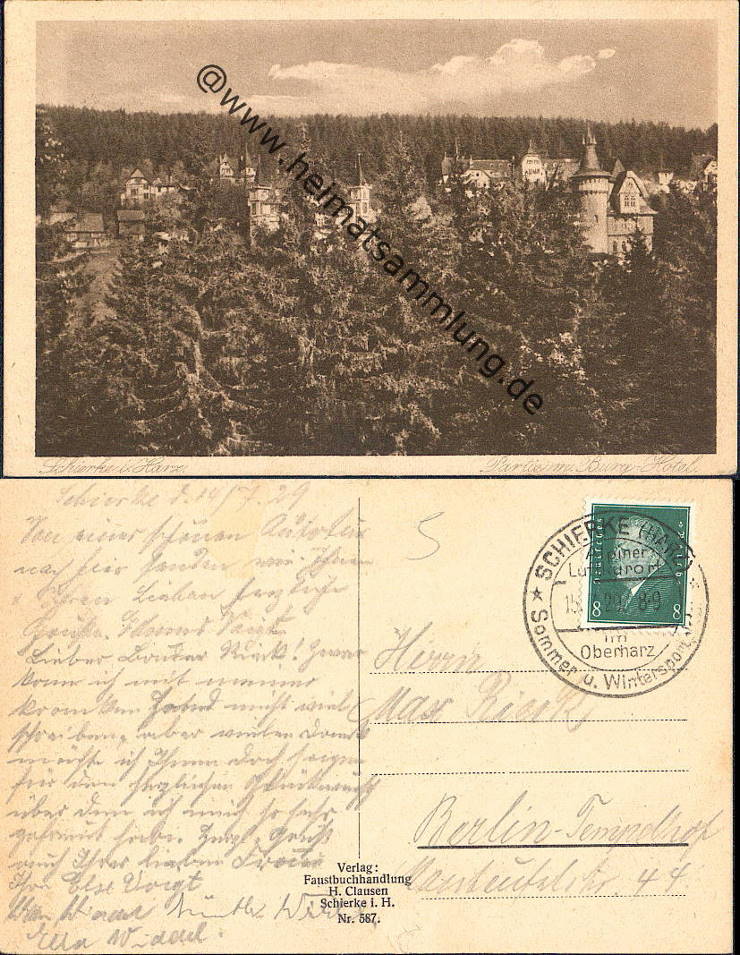 @www.heimatsammlung.de
Schierke i. Harz. Partie m. Burg-Hotel.
Schierke d. 14/7. 29
Von einer schönen Autotur
nach hier senden wir Ihnen
Ihren Lieben herzliche
Grüße. Voigt
Lieber! Zwar
kann ich mit meiner
kranken Hand nicht viel
schreiben, aber vielen Dank
möchte ich Ihnen doch sagen
für den herzlichen Glückwunsch
über den ich mich so sehr
gefreut habe. Grüß
auch Ihrer lieben Frau
Ihre Else Voigt
Ella
5
SCHIERKE (HARZ)
Luftkurort
15. 29. 8-9
im
Oberharz
Sommer u. Wintersport
8 8
Herrn
Max
Berlin-Tempelhof
44
Verlag:
Faustbuchhandlung
H. Clausen
Schierke i. H.
Nr. 587.